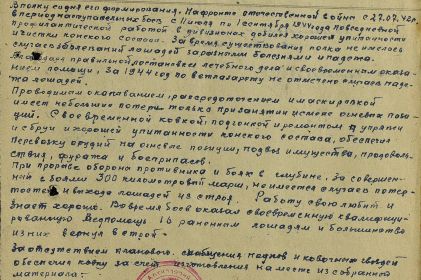 В полку со дня его формирования. На фронте отечественной войны с 27.07.42г.
в период наступательных боев с 11 июля по 1 сентября 1944 года повседневной
профилактической работой в дивизионах добился хорошей упитанности
и чистки конского состава. За время существования полка не имелось
случаев заболеваний лошадей заразными болезнями и падежа.
Благодаря правильной постановке лечебного дела и своевременным оказа-
нием помощи, за 1944 год по ветлазарету не отмечено случаев паде-
жа лошадей.
Проводимым окапыванием, рассредоточением и маскировкой
имеет небольшие потери только при занятии целом огневых пози-
ций. Своевременной ковкой подгонкой и ремонтом упряжи
и сбруи и хорошей упитанности конского состава, обеспечил
перевозку орудий на огневые позиции, подвоз имущества, продоволь-
ствия, фуража и боеприпасов.
При прорыве обороны противника и боях в глубине, за совершен-
ный с боями 300 километровый марш, не имеется случаев потер-
тостей и выхода лошадей из строя. Работу свою любит и
знает хорошо. Во время боев оказал своевременную квалифици-
рованную ветпомощь 16 раненым лошадям и большинство
из них вернул в строй.
За отсутствием планового снабжения подков и ковочных гвоздей
обеспечил ковку за счет изготовления на месте из собранного
материала.